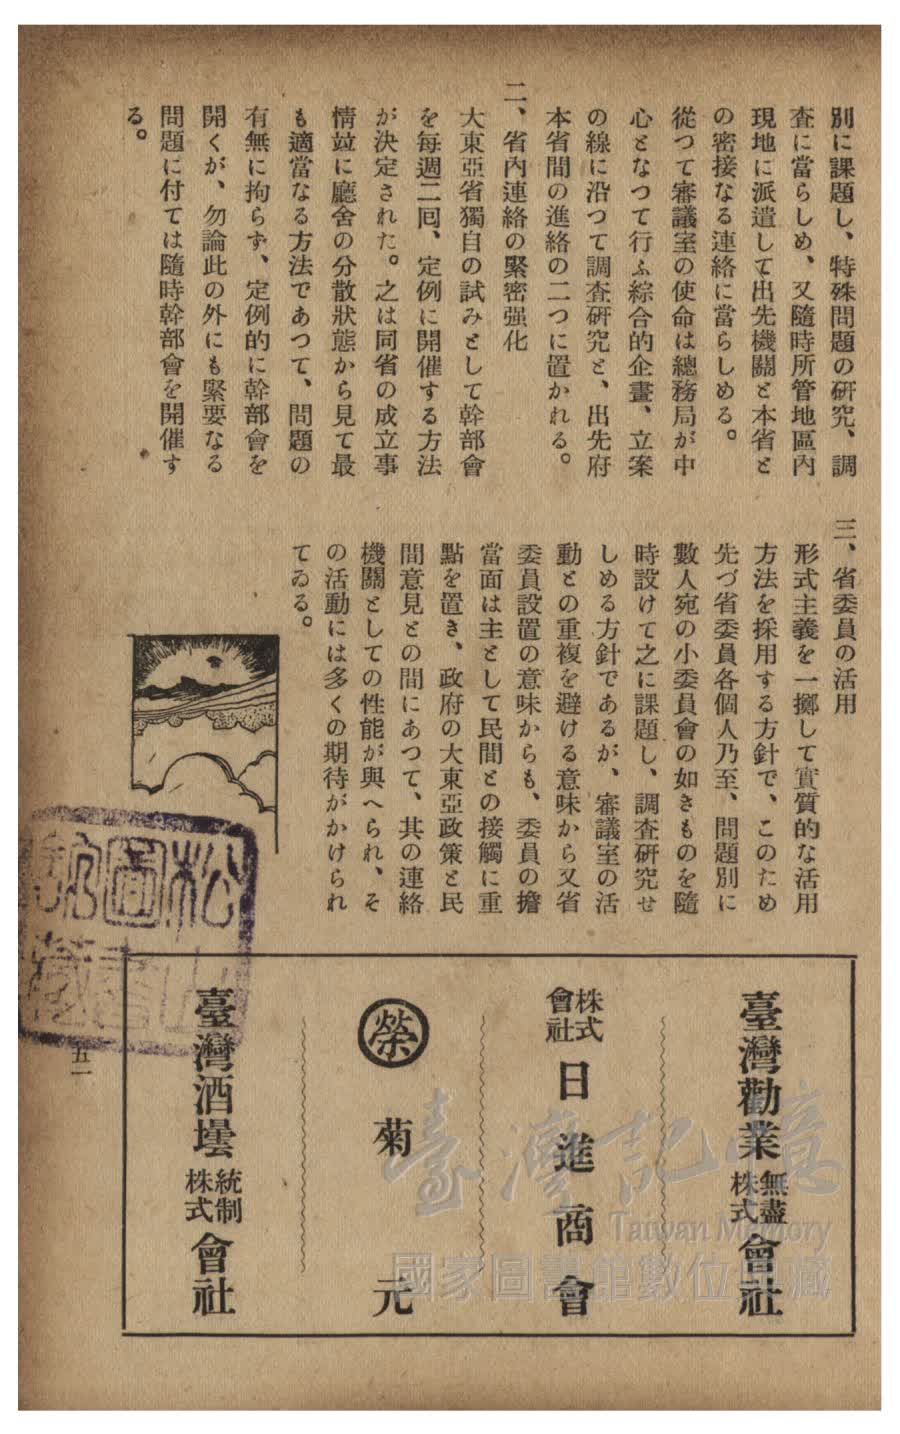 別に課題し、特殊問題の硏究、調
査に當らしめ、又隨時所管地區內
現地に派遣して出先機關と本省と
の密接なる連絡に當らしめる。
從つて審議室の使命は總務局が中
心となつて行ふ綜合的企畫、立案
の線に沿つて調査硏究と、出先府
本省間の進絡の二つに置かれる。
二、省內連絡の緊密强化
大東亞省獨自の試みとして幹部會
を每週二囘、定例に開催する方法
が決定された。之は同省の成立事
情竝に廳舍の分散狀態から見て最
も適當なる方法であつて、問題の
有無に拘らず、定例的に幹部會を
開くが、勿論此の外にも緊要なる
問題に付ては隨時幹部會を開催す
る。
三、省委員の活用
形式主義を一擲して實質的な活用
方法を採用する方針で、このため
先づ省委員各個人乃至、問題別に
數人宛の小委員會の如きものを隨
時設けて之に課題し、調査硏究せ
しめる方針であるが、審議室の活
動との重複を避ける意味から又省
委員設置の意味からも、委員の擔
當面は主として民間との接觸に重
點を置き、政府の大東亞政策と民
間意見との間にあつて、其の連絡
機關としての性能が與へられ、そ
の活動には多くの期待がかけられ
てゐる。
臺灣勸業無盡株式會社
株式會社日進商會
榮 菊元
臺灣酒壜統制株式會社
五一
松山圖書館藏
臺灣記憶
Taiwan Memory
國家圖書館數位典藏